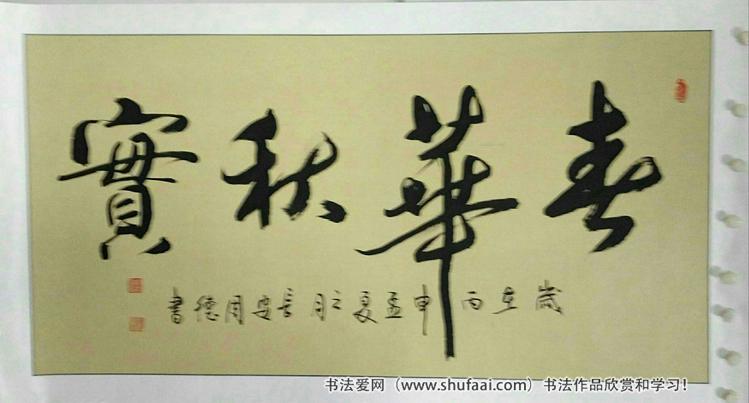 春華秋實
歲在丙申孟夏之月長安周德書
书法爱网（www.shufaai.com）书法作品欣赏和学习！